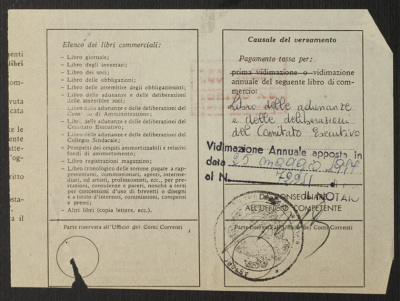 Elenco dei libri commerciali:
— Libro giornale;
— Libro degli inventari;
— Libro dei soci;
— Libro delle obbligazioni;
— Libro delle assemblee degli obbligazionisti;
— Libro delle adunanze e delle deliberazioni delle assemblee soci;
— Libro delle adunanze e delle deliberazioni del Consiglio di Amministrazione;
— Libro delle adunanze e delle deliberazioni del Comitato Esecutivo;
— Libro delle adunanze e delle deliberazioni del Collegio Sindacale;
— Prospetti dei cespiti ammortizzabili e relativi fondi di ammortamento;
— Libro registrazioni magazzino;
— Libro cronologico delle somme pagate a rappresentanti, commissionari, agenti, intermediari, ad artisti, professionisti, ecc., per prestazioni, consulenze e pareri, nonché a terzi per concessioni d'uso di brevetti o disegni e a titolo d'interessi, commissioni, compensi e premi;
— Altri libri (copia lettere, ecc.).
Parte riservata all'Ufficio dei Conti Correnti
Causale del versamento
Pagamento tassa per:
prima vidimazione o vidimazione
annuale del seguente libro di com-
mercio:
Libro delle adunanze
e delle deliberazioni
del Comitato Esecutivo
Vidimazione Annuale apposta in
data 25 maggio
al N.
DA CONSEGNARE
ALL'UFFICIO COMPETENTE
Parte riservata all'Ufficio dei Conti Correnti